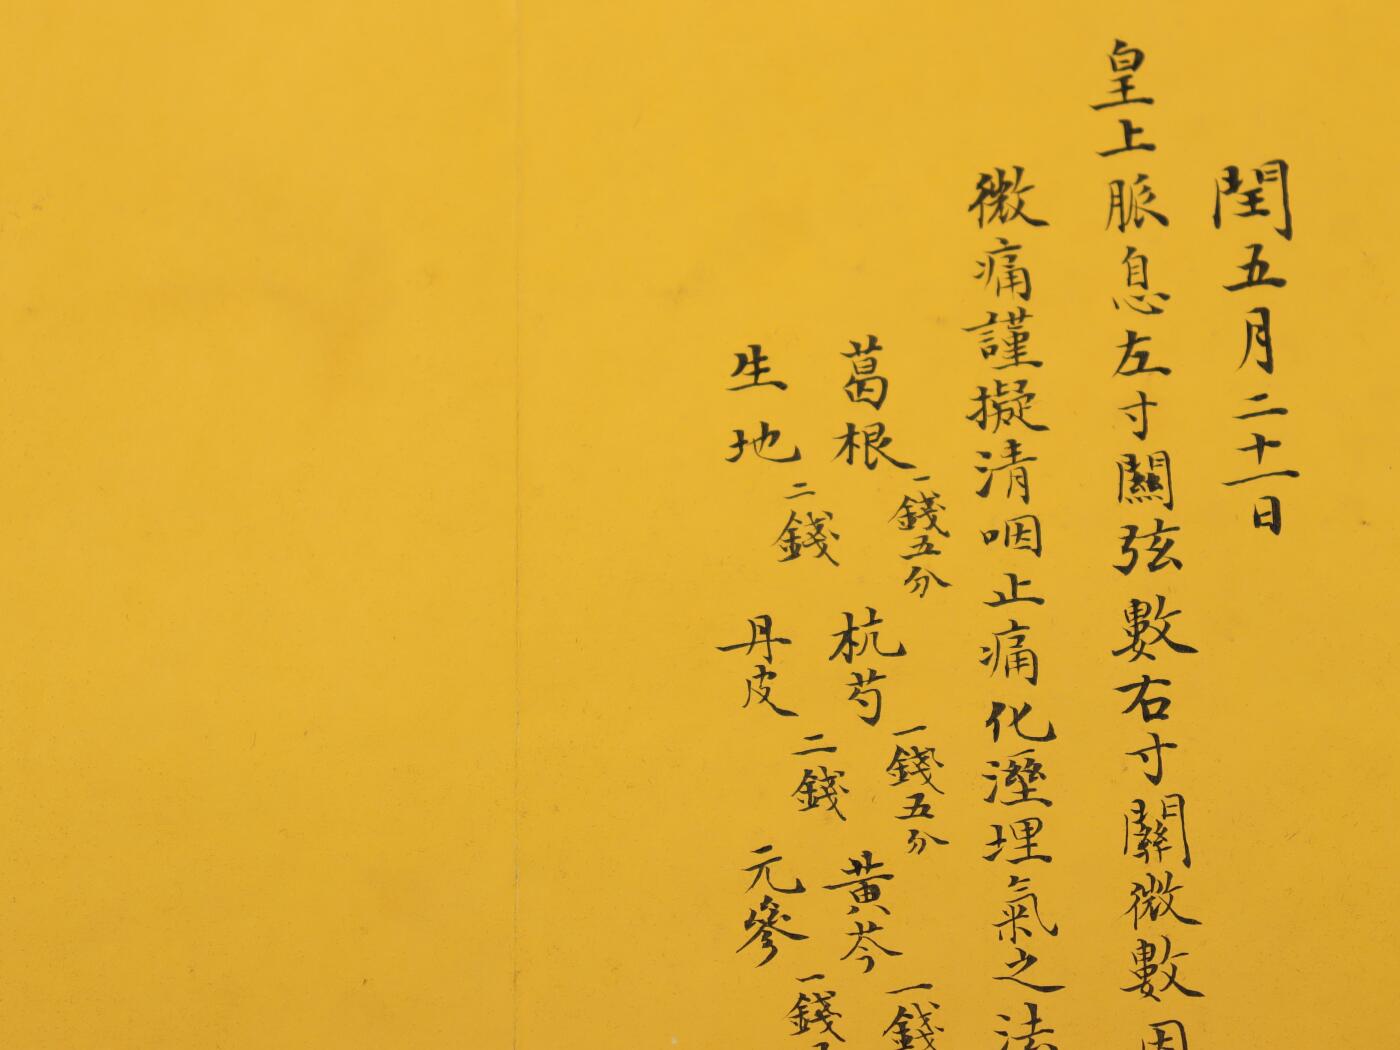 閏五月二十一日
皇上脈息左寸關弦數右寸關微數因
微痛謹擬清咽止痛化溼理氣之法
葛根一錢五分 杭芍一錢五分 黃芩一錢
生地二錢 丹皮二錢 元參一錢